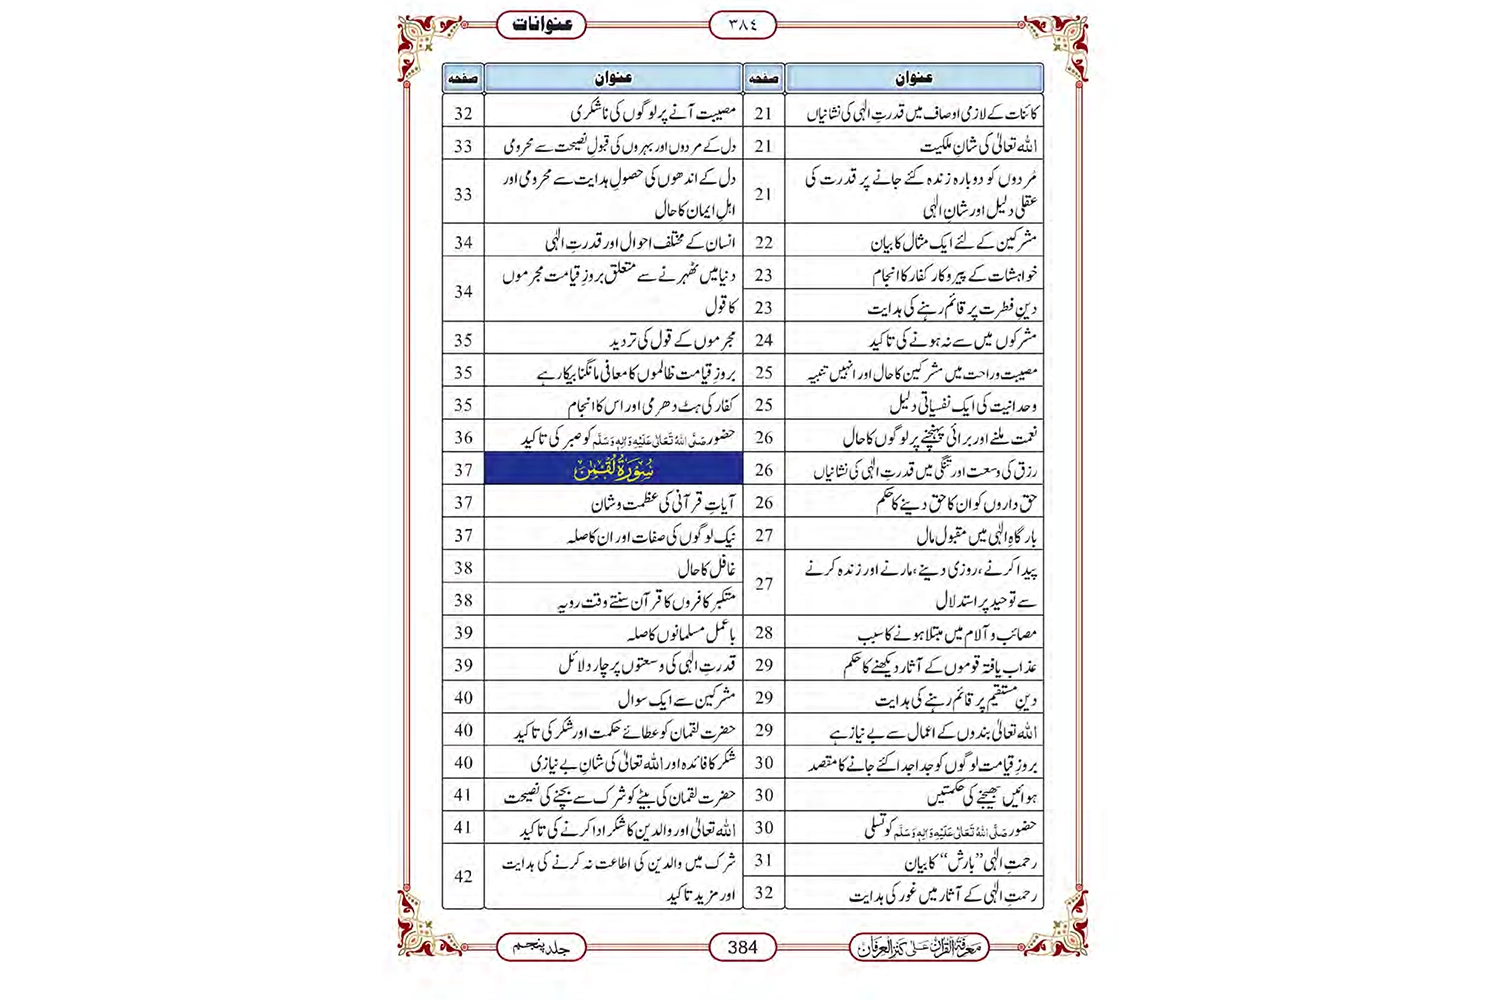 عنوانات
۳۸٤
عنوان صفحہ
کائنات کے لازمی اوصاف میں قدرتِ الٰہی کی نشانیاں 21
اللہ تعالیٰ کی شانِ ملکیت 21
مُردوں کو دوبارہ زندہ کئے جانے پر قدرت کی
عقلی دلیل اور شانِ الٰہی 21
مشرکین کے لئے ایک مثال کا بیان 22
خواہشات کے پیروکار کفار کا انجام 23
دینِ فطرت پر قائم رہنے کی ہدایت 23
مشرکوں میں سے نہ ہونے کی تاکید 24
مصیبت و راحت میں مشرکین کا حال اور انہیں تنبیہ 25
وحدانیت کی ایک نفسیاتی دلیل 25
نعمت ملنے اور برائی پہنچنے پر لوگوں کا حال 26
رزق کی وسعت اور تنگی میں قدرتِ الٰہی کی نشانیاں 26
حق داروں کو ان کا حق دینے کا حکم 26
بارگاہِ الٰہی میں مقبول مال 27
پیدا کرنے، روزی دینے، مارنے اور زندہ کرنے
سے توحید پر استدلال 27
مصائب و آلام میں مبتلا ہونے کا سبب 28
عذاب یافتہ قوموں کے آثار دیکھنے کا حکم 29
دینِ مستقیم پر قائم رہنے کی ہدایت 29
اللہ تعالیٰ بندوں کے اعمال سے بے نیاز ہے 29
بروزِ قیامت لوگوں کو جدا جدا کئے جانے کا مقصد 30
ہوائیں بھیجنے کی حکمتیں 30
حضور صَلَّی اللہُ تَعَالٰی عَلَیْہِ وَاٰلِہٖ وَسَلَّم کو تسلی 30
رحمتِ الٰہی ”بارش“ کا بیان 31
رحمتِ الٰہی کے آثار میں غور کی ہدایت 32
عنوان صفحہ
مصیبت آنے پر لوگوں کی ناشکری 32
دل کے مردوں اور بہروں کی قبولِ نصیحت سے محرومی 33
دل کے اندھوں کی حصولِ ہدایت سے محرومی اور
اہلِ ایمان کا حال 33
انسان کے مختلف احوال اور قدرتِ الٰہی 34
دنیا میں ٹھہرنے سے متعلق بروزِ قیامت مجرموں
کا قول 34
مجرموں کے قول کی تردید 35
بروزِ قیامت ظالموں کا معافی مانگنا بیکار ہے 35
کفار کی ہٹ دھرمی اور اس کا انجام 35
حضور صَلَّی اللہُ تَعَالٰی عَلَیْہِ وَاٰلِہٖ وَسَلَّم کو صبر کی تاکید 36
سُوْرَۃُ لُقْمٰن 37
آیاتِ قرآنی کی عظمت و شان 37
نیک لوگوں کی صفات اور ان کا صلہ 37
غافل کا حال 38
متکبر کافروں کا قرآن سنتے وقت رویہ 38
باعمل مسلمانوں کا صلہ 39
قدرتِ الٰہی کی وسعتوں پر چار دلائل 39
مشرکین سے ایک سوال 40
حضرت لقمان کو عطائے حکمت اور شکر کی تاکید 40
شکر کا فائدہ اور اللہ تعالیٰ کی شانِ بے نیازی 40
حضرت لقمان کی بیٹے کو شرک سے بچنے کی نصیحت 41
اللہ تعالیٰ اور والدین کا شکر ادا کرنے کی تاکید 41
شرک میں والدین کی اطاعت نہ کرنے کی ہدایت
اور مزید تاکید 42
معرفۃ القرآن علی کنز العرفان
384
جلد پنجم